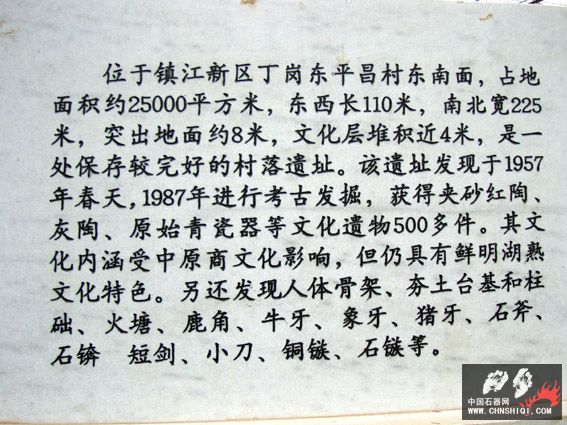 位于镇江新区丁岗东平昌村东南面，占地
面积约25000平方米，东西长110米，南北宽225
米，突出地面约8米，文化层堆积近4米，是一
处保存较完好的村落遗址。该遗址发现于1957
年春天，1987年进行考古发掘，获得夹砂红陶、
灰陶、原始青瓷器等文化遗物500多件。其文
化内涵受中原商文化影响，但仍具有鲜明湖熟
文化特色。另还发现人体骨架、夯土台基和柱
础、火塘、鹿角、牛牙、象牙、猪牙、石斧、
石锛 短剑、小刀、铜镞、石镞等。
中国石器网
www.CHNSHIQI.COM